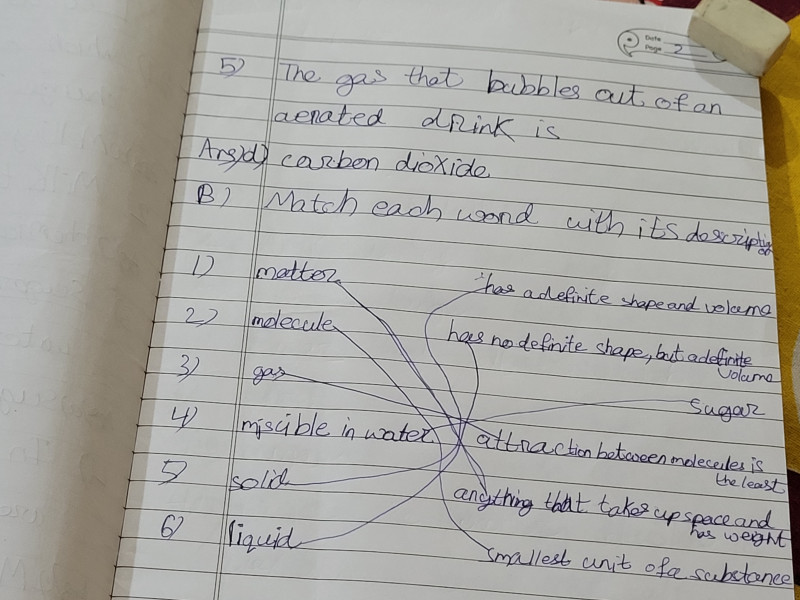 Date
Page 2
5) The gas that bubbles out of an
aerated drink is
Ans)d) carbon dioxide
B) Match each word with its description
1) matter
has a definite shape and volume
2) molecule
has no definite shape, but a definite
volume
3) gas
Sugar
4) miscible in water
attraction between molecules is
the least
5) solid
anything that takes up space and
has weight
6) liquid
smallest unit of a substance